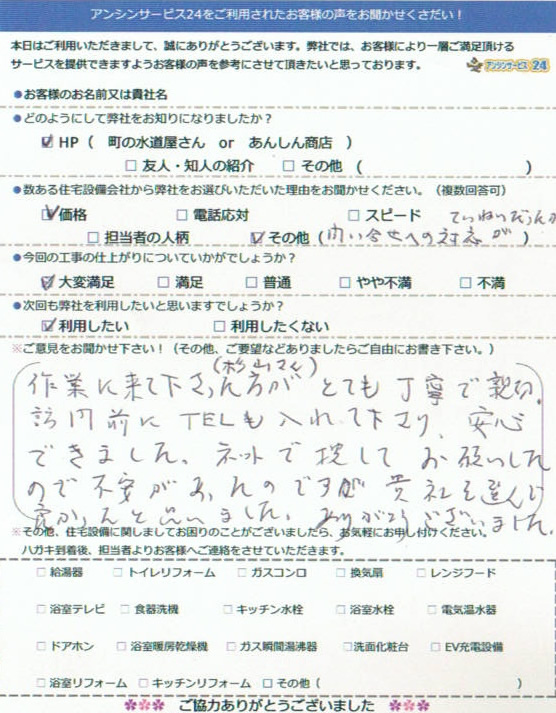 アンシンサービス24をご利用されたお客様の声をお聞かせください！
本日はご利用いただきまして、誠にありがとうございます。弊社では、お客様により一層ご満足頂ける
サービスを提供できますようお客様の声を参考にさせて頂きたいと思っております。 アンシンサービス24
●お客様のお名前又は貴社名
●どのようにして弊社をお知りになりましたか？
☑ HP（ 町の水道屋さん or あんしん商店 ）
□ 友人・知人の紹介 □ その他（ ）
●数ある住宅設備会社から弊社をお選びいただいた理由をお聞かせください。（複数回答可）
☑価格 □ 電話応対 □ スピード ていねいだったか
□ 担当者の人柄 ☑その他（問い合せへの対応が ）
●今回の工事の仕上がりについていかがでしょうか？
☑ 大変満足 □ 満足 □ 普通 □ やや不満 □ 不満
●次回も弊社を利用したいと思いますでしょうか？
☑利用したい □ 利用したくない
※ご意見をお聞かせ下さい！（その他、ご要望などありましたらご自由にお書き下さい。）
（杉山さん）
作業に来て下さった方が とても丁寧で親切。
訪問前に TELも入れて下さり、安心
できました。ネットで探して お願いした
ので不安があったのですが 貴社を選んで
良かったと思いました。ありがとうございました。
※その他、住宅設備に関しましてお困りのことがございましたら、お気軽にお申し付けください。
ハガキ到着後、担当者よりお客様へご連絡をさせていただきます。
□ 給湯器 □ トイレリフォーム □ ガスコンロ □ 換気扇 □ レンジフード
□ 浴室テレビ □ 食器洗機 □ キッチン水栓 □ 浴室水栓 □ 電気温水器
□ ドアホン □ 浴室暖房乾燥機 □ ガス瞬間湯沸器 □洗面化粧台 □ EV充電設備
□ 浴室リフォーム □ キッチンリフォーム □ その他（ ）
ご協力ありがとうございました